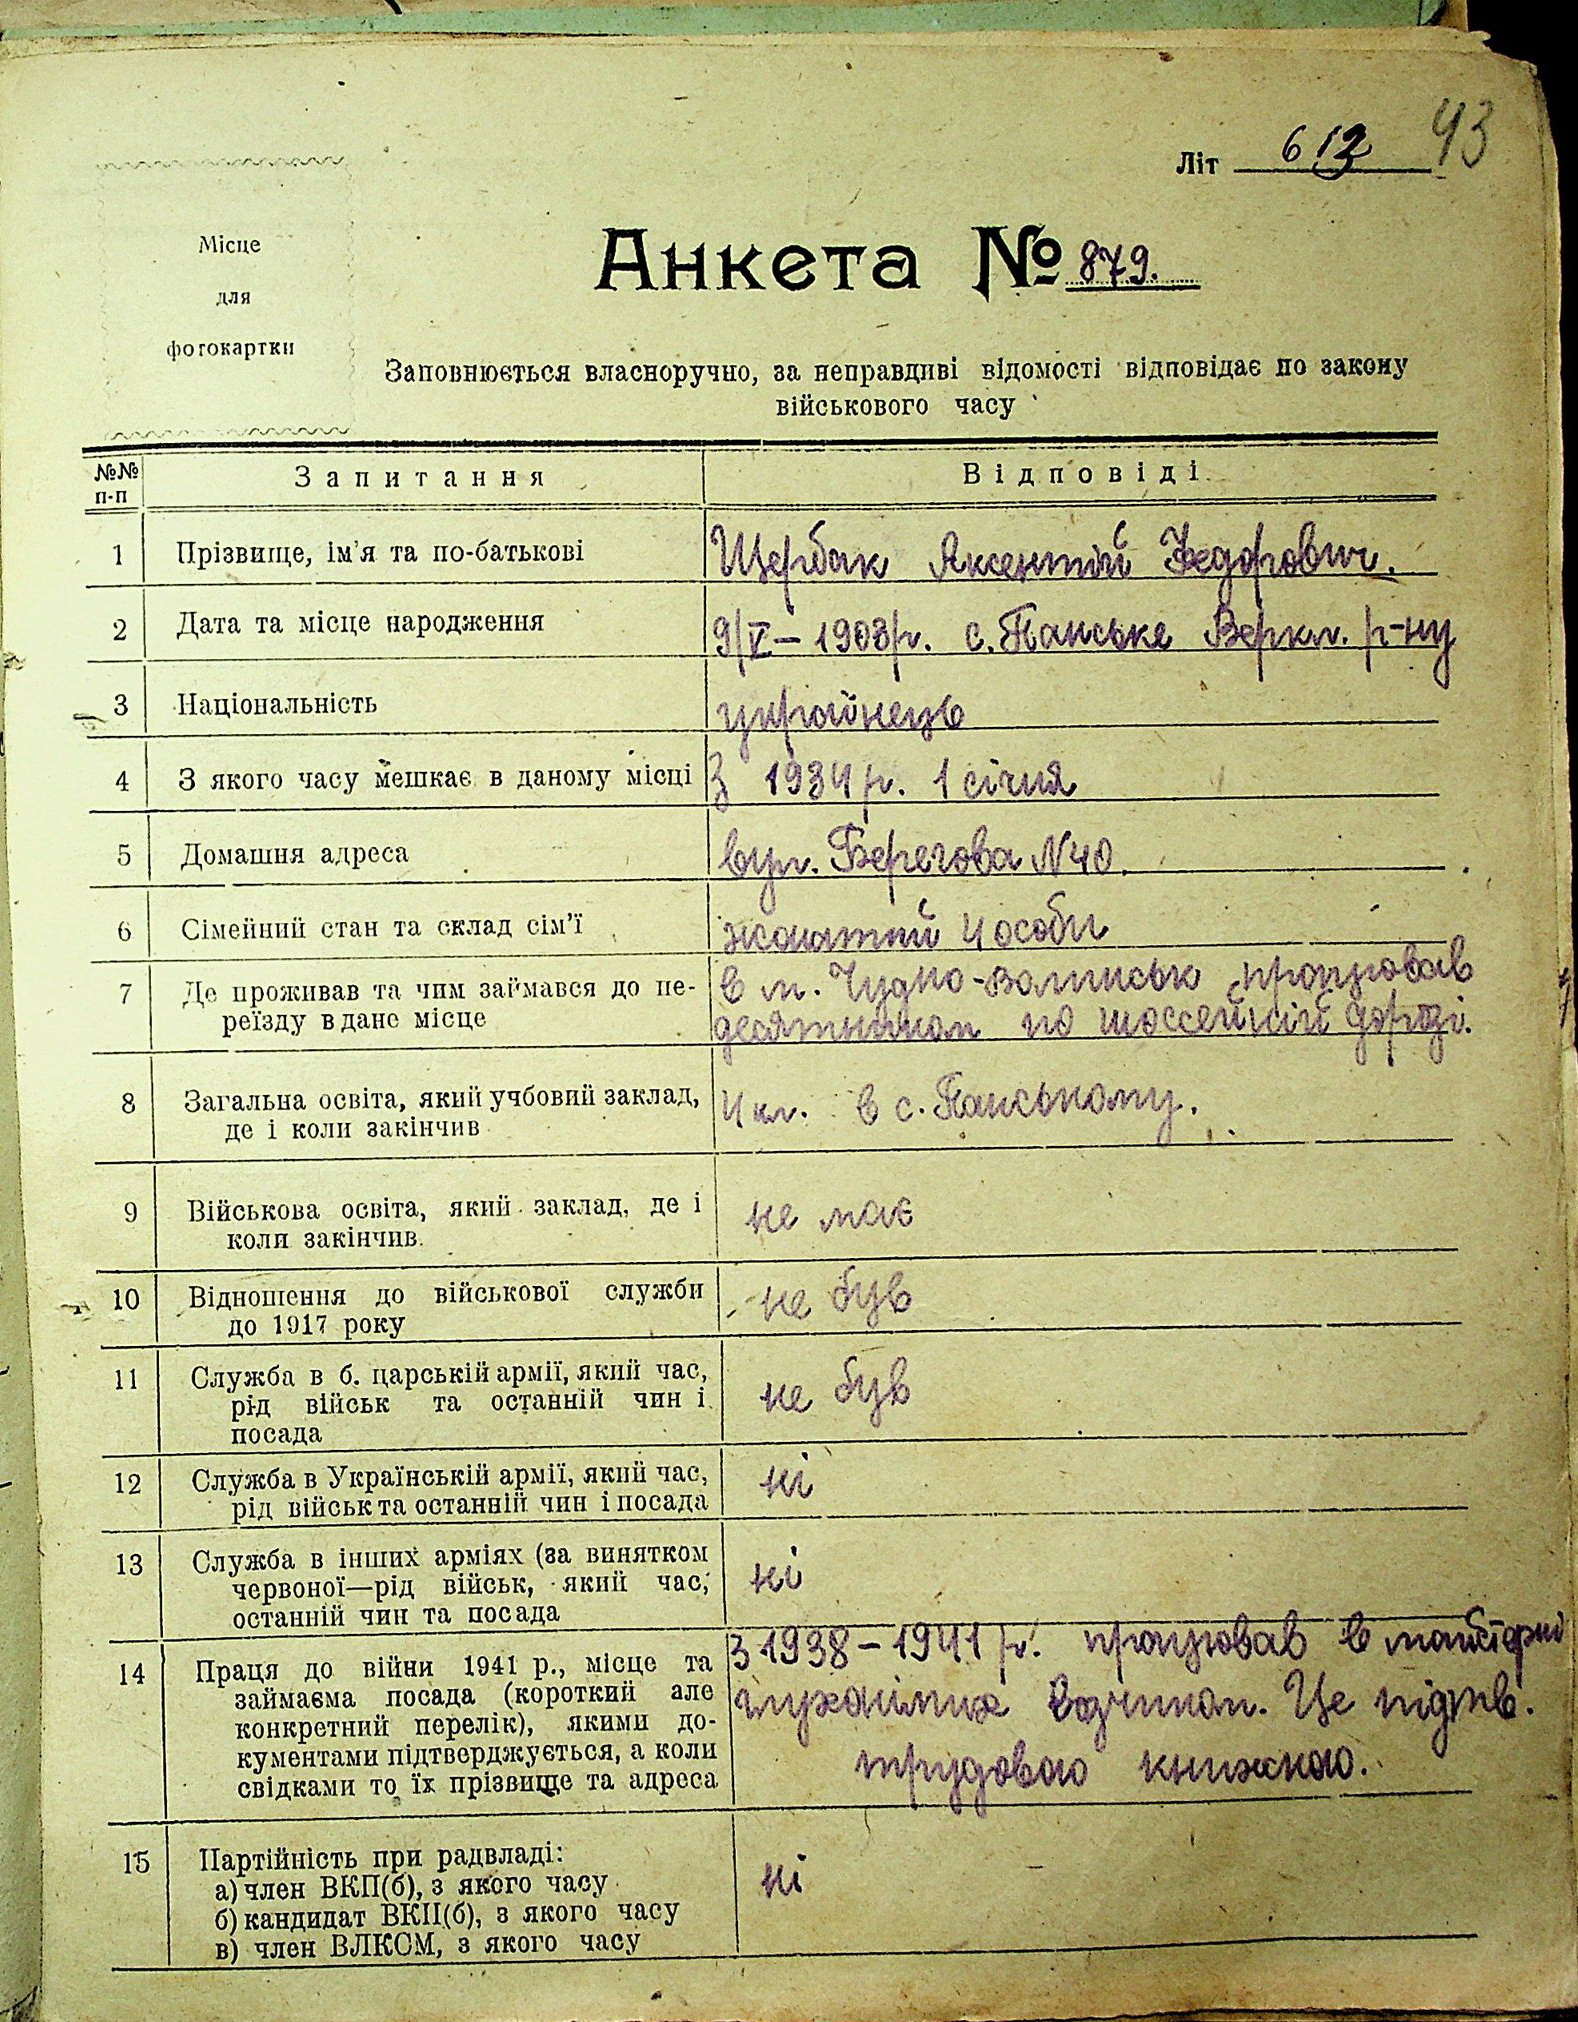 43
Літ 613
Місце
для
фотокартки
Анкета № 879.
Заповнюється власноручно, за неправдиві відомості відповідає по закону
військового часу
№№ п-п Запитання Відповіді
1 Прізвище, ім'я та по-батькові Щербак Яксентій Федорович.
2 Дата та місце народження 9/V – 1903 р. с. Панське Веркл. р-ну
3 Національність українець
4 З якого часу мешкає в даному місці З 1934 р. 1 січня
5 Домашня адреса вул. Берегова N 40.
6 Сімейний стан та склад сім'ї жонатий 4 особи
7 Де проживав та чим займався до пе- в м. Чудно-Волинськ працював
реїзду в дане місце десятником по шоссейній дорозі.
8 Загальна освіта, який учбовий заклад, 4 кл. в с. Панському.
де і коли закінчив
9 Військова освіта, який заклад, де і не має
коли закінчив.
10 Відношення до військової служби не був
до 1917 року
11 Служба в б. царській армії, який час, не був
рід військ та останній чин і
посада
12 Служба в Українській армії, який час, ні
рід військ та останній чин і посада
13 Служба в інших арміях (за винятком ні
червоної—рід військ, який час,
останній чин та посада
14 Праця до війни 1941 р., місце та З 1938 – 1941 р. працював в майстерні
займаєма посада (короткий але глухонімих возчиком. Це підтв.
конкретний перелік), якими до- трудовою книжкою.
кументами підтверджується, а коли
свідками то їх прізвище та адреса
15 Партійність при радвладі: ні
а) член ВКП(б), з якого часу
б) кандидат ВКП(б), з якого часу
в) член ВЛКСМ, з якого часу